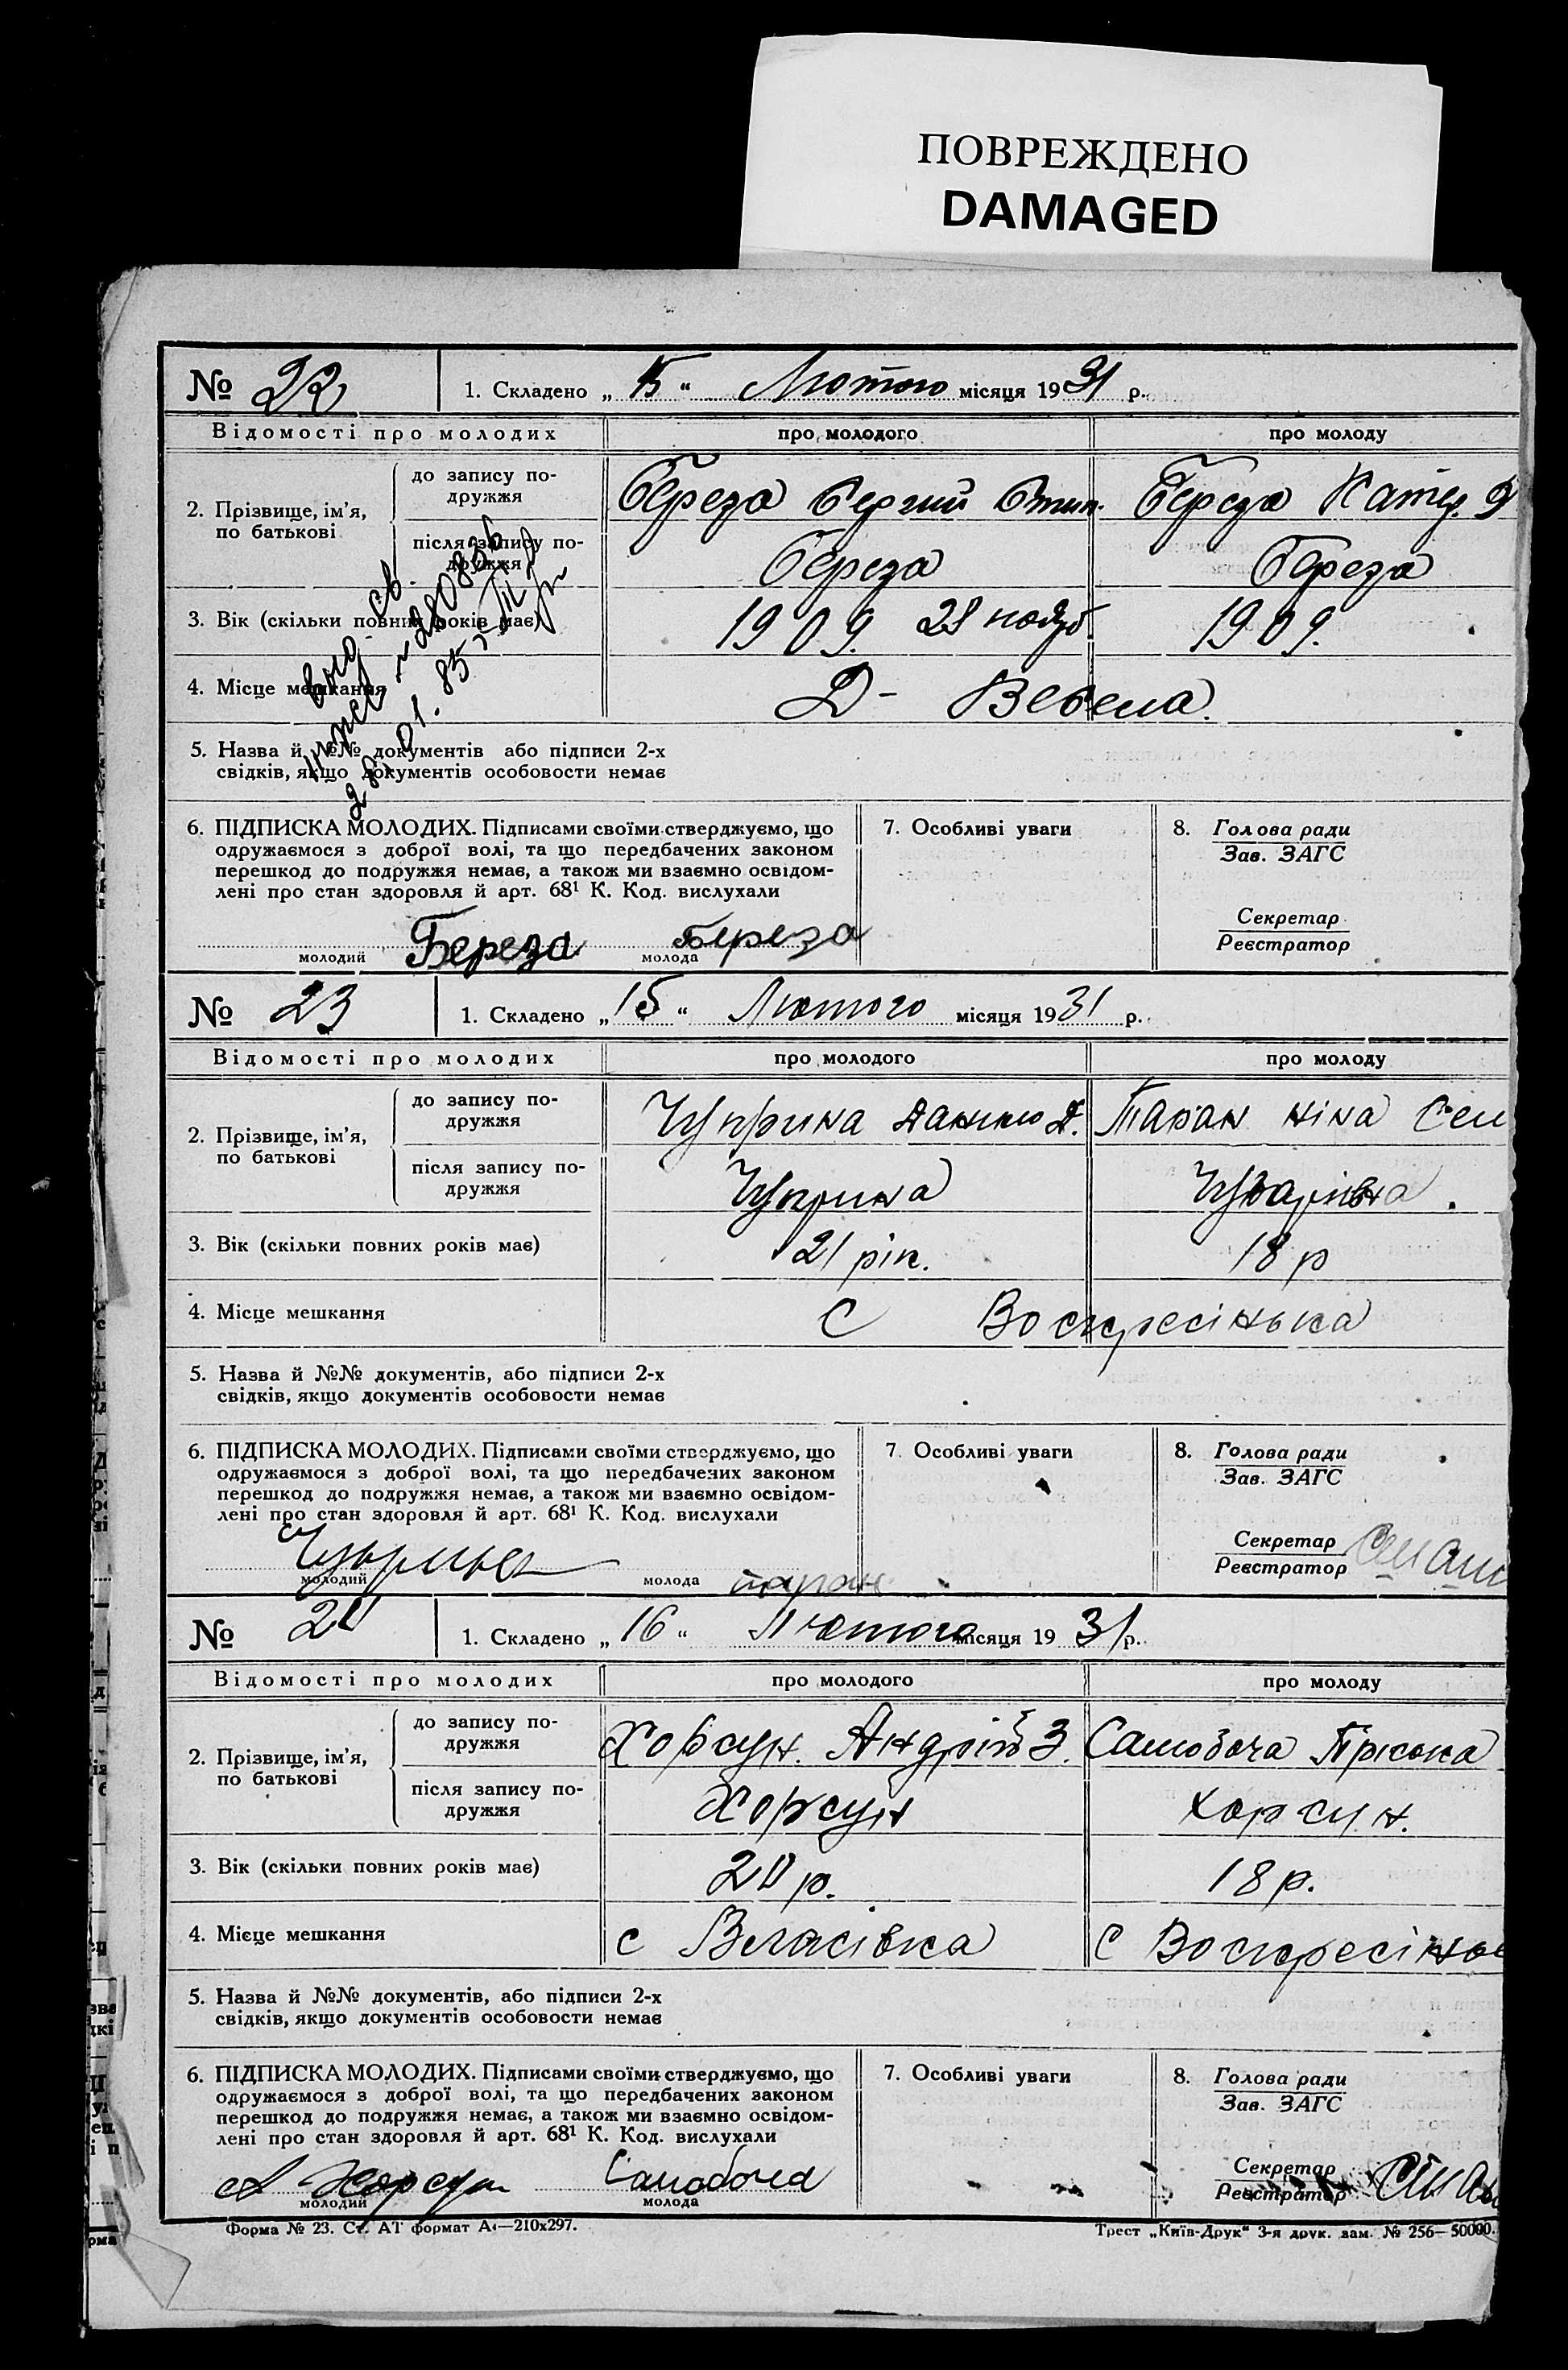 ПОВРЕЖДЕНО
DAMAGED
№ 22 1. Складено „ 15 “ Лютого місяця 1931 р.
Відомості про молодих про молодого про молоду
2. Прізвище, ім’я, по батькові
до запису подружжя Береза Сергий Береза Катер.
після запису подружжя Береза Береза
3. Вік (скільки повних років має) 1909. 28 нояб 1909.
4. Місце мешкання Д-
выд. св.
28. 01. 85
5. Назва й №№ документів або підписи 2-х
свідків, якщо документів особовости немає
6. ПІДПИСКА МОЛОДИХ. Підписами своїми стверджуємо, що
одружаємося з доброї волі, та що передбачених законом
перешкод до подружжя немає, а також ми взаємно освідом-
лені про стан здоровля й арт. 68¹ К. Код. вислухали
7. Особливі уваги
8. Голова ради
Зав. ЗАГС
Секретар
Реєстратор
молодий Береза молода Береза
№ 23 1. Складено „ 15 “ Лютого місяця 1931 р.
Відомості про молодих про молодого про молоду
2. Прізвище, ім’я, по батькові
до запису подружжя Чуприна Данило Д. Таран Ніна Сем
після запису подружжя Чуприна
3. Вік (скільки повних років має) 21 рік. 18 р
4. Місце мешкання С Воскресінька
5. Назва й №№ документів, або підписи 2-х
свідків, якщо документів особовости немає
6. ПІДПИСКА МОЛОДИХ. Підписами своїми стверджуємо, що
одружаємося з доброї волі, та що передбачених законом
перешкод до подружжя немає, а також ми взаємно освідом-
лені про стан здоровля й арт. 68¹ К. Код. вислухали
7. Особливі уваги
8. Голова ради
Зав. ЗАГС
Секретар
Реєстратор
молодий молода таран
№ 24 1. Складено „ 16 “ Лютого місяця 1931 р.
Відомості про молодих про молодого про молоду
2. Прізвище, ім’я, по батькові
до запису подружжя Хорсун. Андрій З. Самобоча Пріська
після запису подружжя Хорсун Хорсун.
3. Вік (скільки повних років має) 20 р. 18 р.
4. Місце мешкання с Власівка С Воскресінь
5. Назва й №№ документів, або підписи 2-х
свідків, якщо документів особовости немає
6. ПІДПИСКА МОЛОДИХ. Підписами своїми стверджуємо, що
одружаємося з доброї волі, та що передбачених законом
перешкод до подружжя немає, а також ми взаємно освідом-
лені про стан здоровля й арт. 68¹ К. Код. вислухали
7. Особливі уваги
8. Голова ради
Зав. ЗАГС
Секретар
Реєстратор
молодий Хорсун молода Самобоча
Форма № 23. Ст. АТ формат А4—210х297. Трест „Київ-Друк“ 3-я друк. зам. № 256—50000.